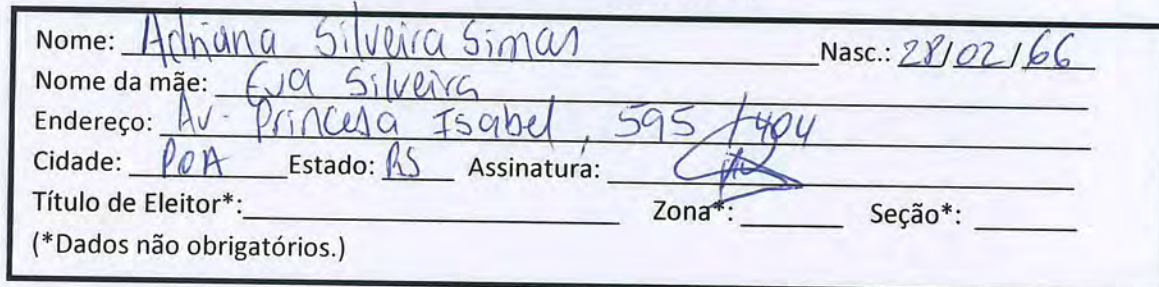 Nome: Adriana Silveira Simas Nasc.: 28/02/66
Nome da mãe: Eva Silveira
Endereço: Av. Princesa Isabel, 595 /404
Cidade: POA Estado: RS Assinatura:
Título de Eleitor*: Zona*: Seção*:
(*Dados não obrigatórios.)